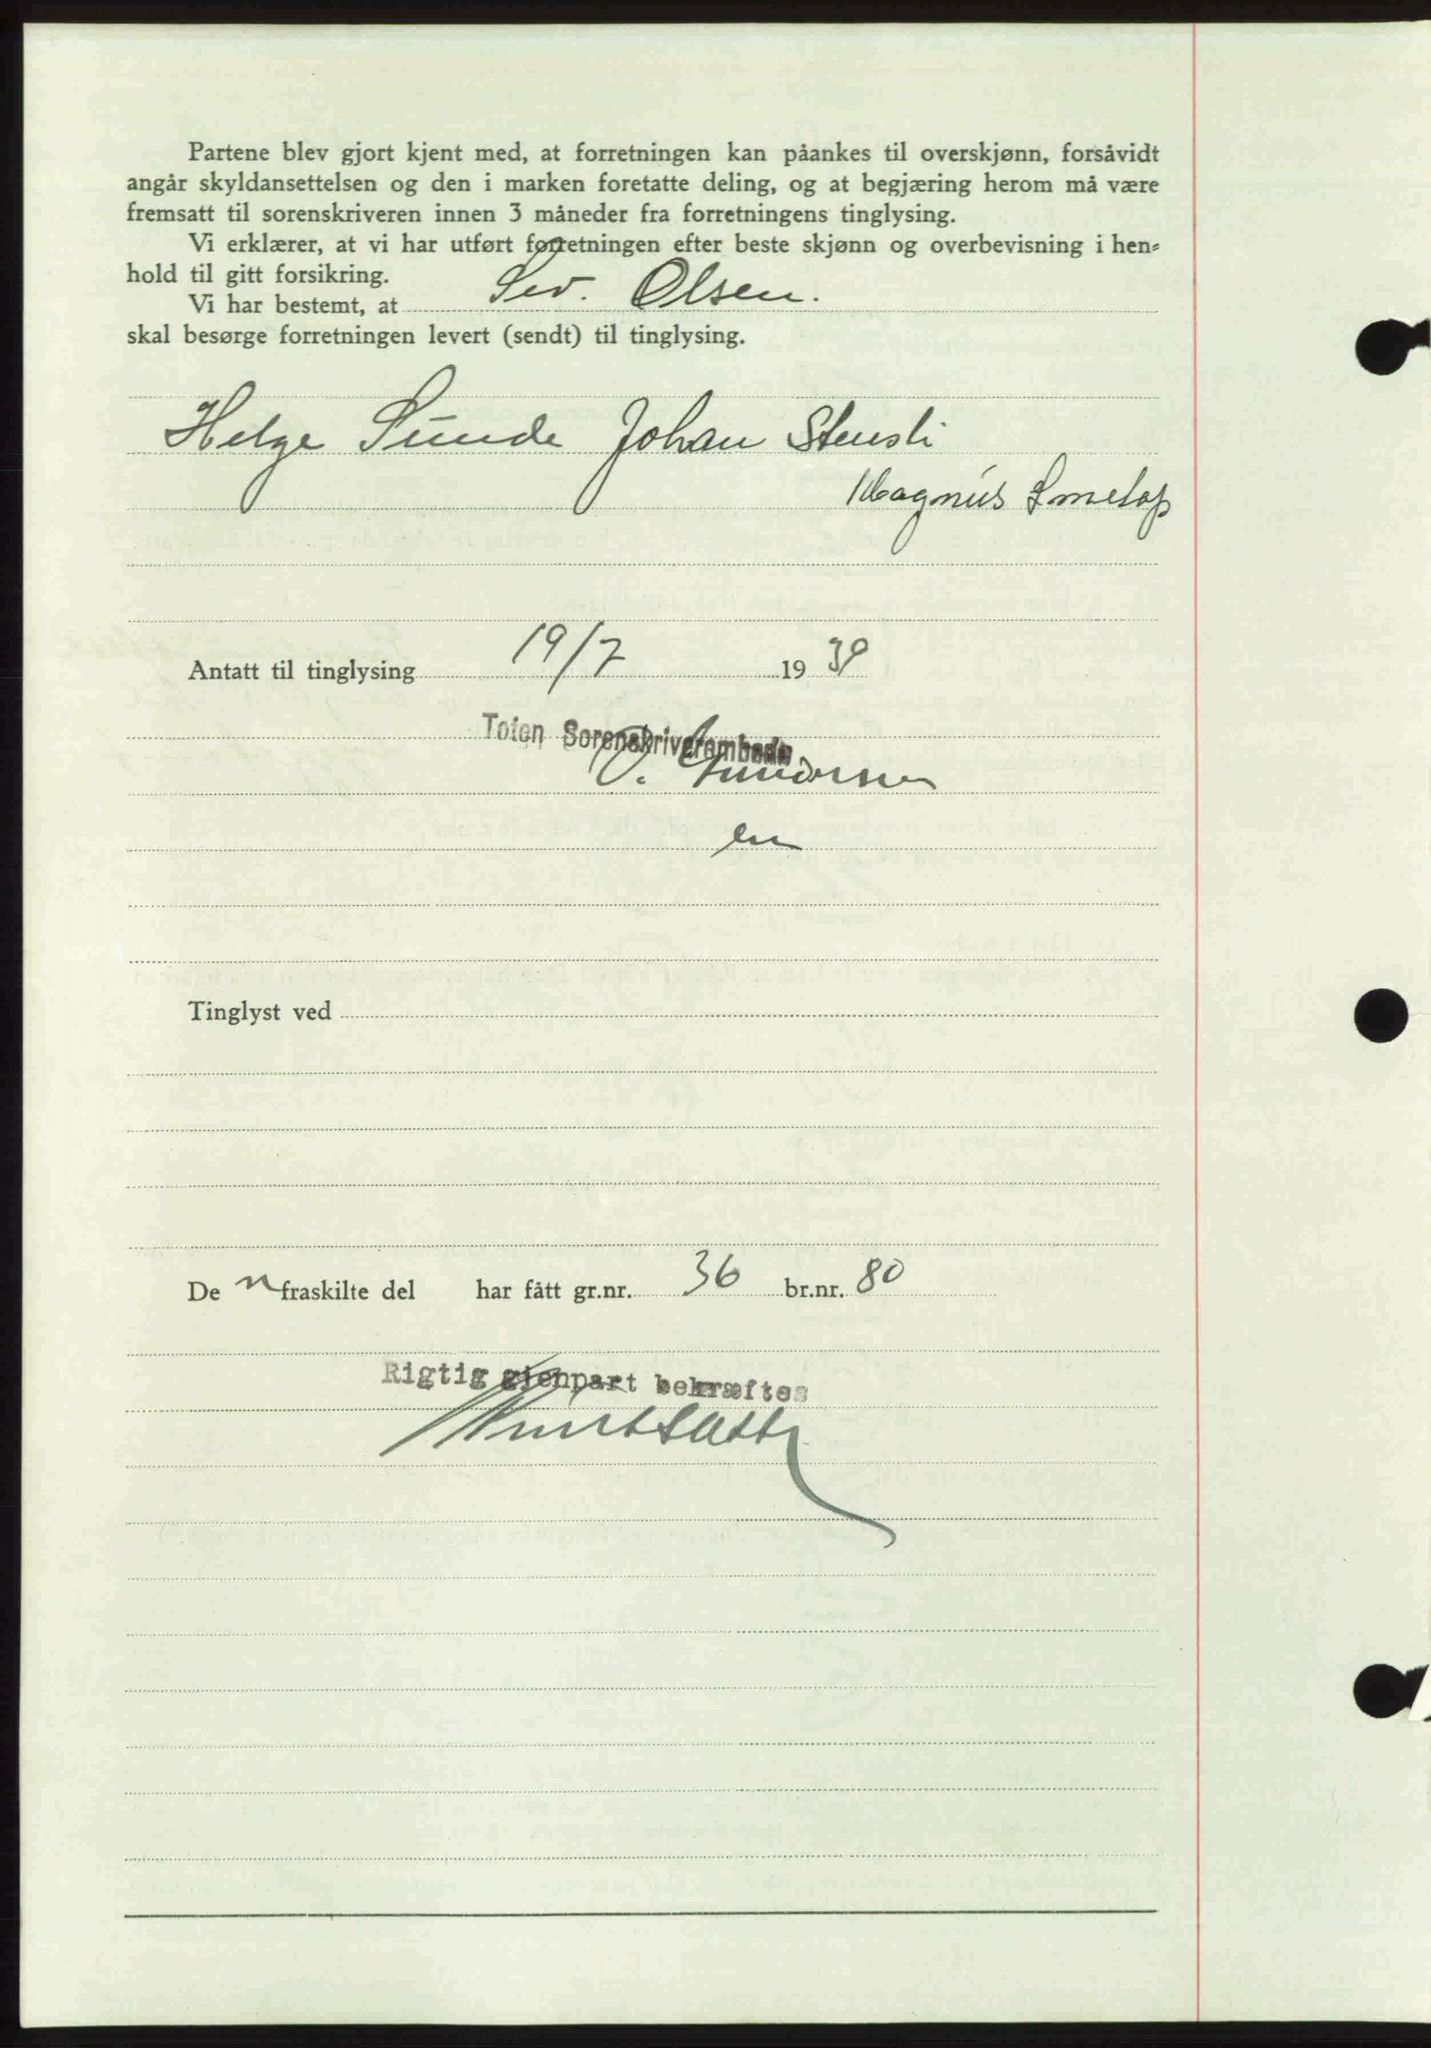 Partene blev gjort kjent med, at forretningen kan påankes til overskjønn, forsåvidt
angår skyldansettelsen og den i marken foretatte deling, og at begjæring herom må være
fremsatt til sorenskriveren innen 3 måneder fra forretningens tinglysing.
Vi erklærer, at vi har utført forretningen efter beste skjønn og overbevisning i hen-
hold til gitt forsikring.
Vi har bestemt, at Sev. Olsen.
skal besørge forretningen levert (sendt) til tinglysing.
Helge Sunde Johan Stensli
Magnus
Antatt til tinglysing 19/7 1939
Toten Sorenskriverembede
Gundersen
Tinglyst ved
De n fraskilte del har fått gr.nr. 36 br.nr. 80
Rigtig gjenpart bekræftes